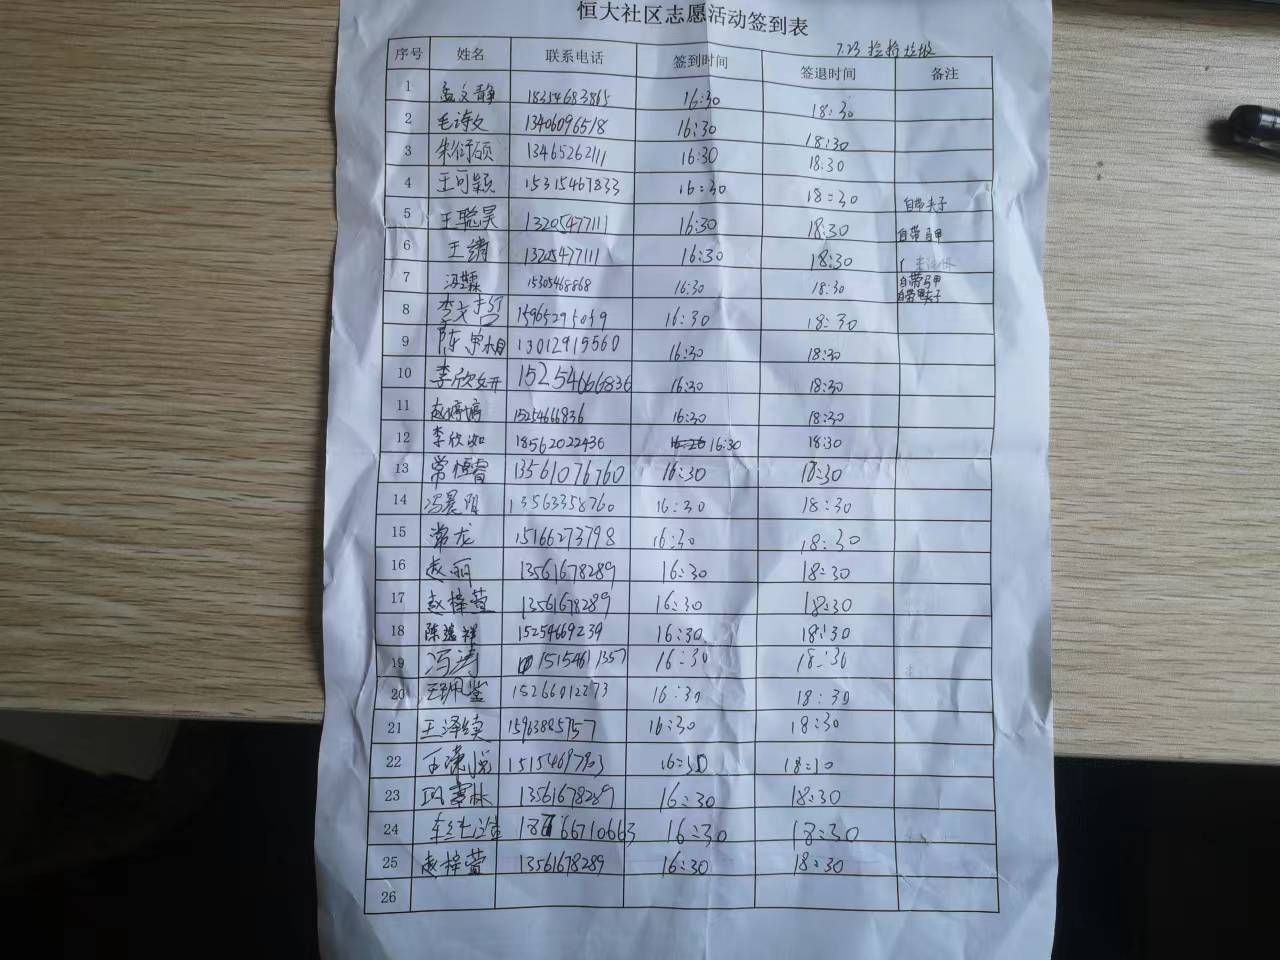 恒大社区志愿活动签到表
7.23 捡拾垃圾
序号 姓名 联系电话 签到时间 签退时间 备注
1 孟文静 18354683865 16:30 18:30
2 毛诗文 13406096518 16:30 18:30
3 朱衍硕 13465262111 16:30 18:30
4 王可颖 15315467833 16:30 18:30 自带夹子
5 王聪昊 13205477111 16:30 18:30 自带马甲
6 王绮 13205477111 16:30 18:30
7 冯霖 15305468868 16:30 18:30 自带马甲
自带夹子
8 李 15965295039 16:30 18:30
9 陈 13012919560 16:30 18:30
10 李欣妍 15254666836 16:30 18:30
11 赵婷婷 15254666836 16:30 18:30
12 李欣如 18562022436 16:30 18:30
13 常恒睿 13561076760 16:30 18:30
14 冯晨阳 13563358760 16:30 18:30
15 常龙 15166273798 16:30 18:30
16 赵丽 13561678289 16:30 18:30
17 赵梓萱 13561678289 16:30 18:30
18 陈逸祥 15254669239 16:30 18:30
19 冯涛 15154611357 16:30 18:30
20 王珮鉴 15266012273 16:30 18:30
21 王泽续 15963885757 16:30 18:30
22 王潇悦 15154697903 16:30 18:30
23 巩富林 13561678289 16:30 18:30
24 16:30 18:30
25 赵梓萱 13561678289 16:30 18:30
26